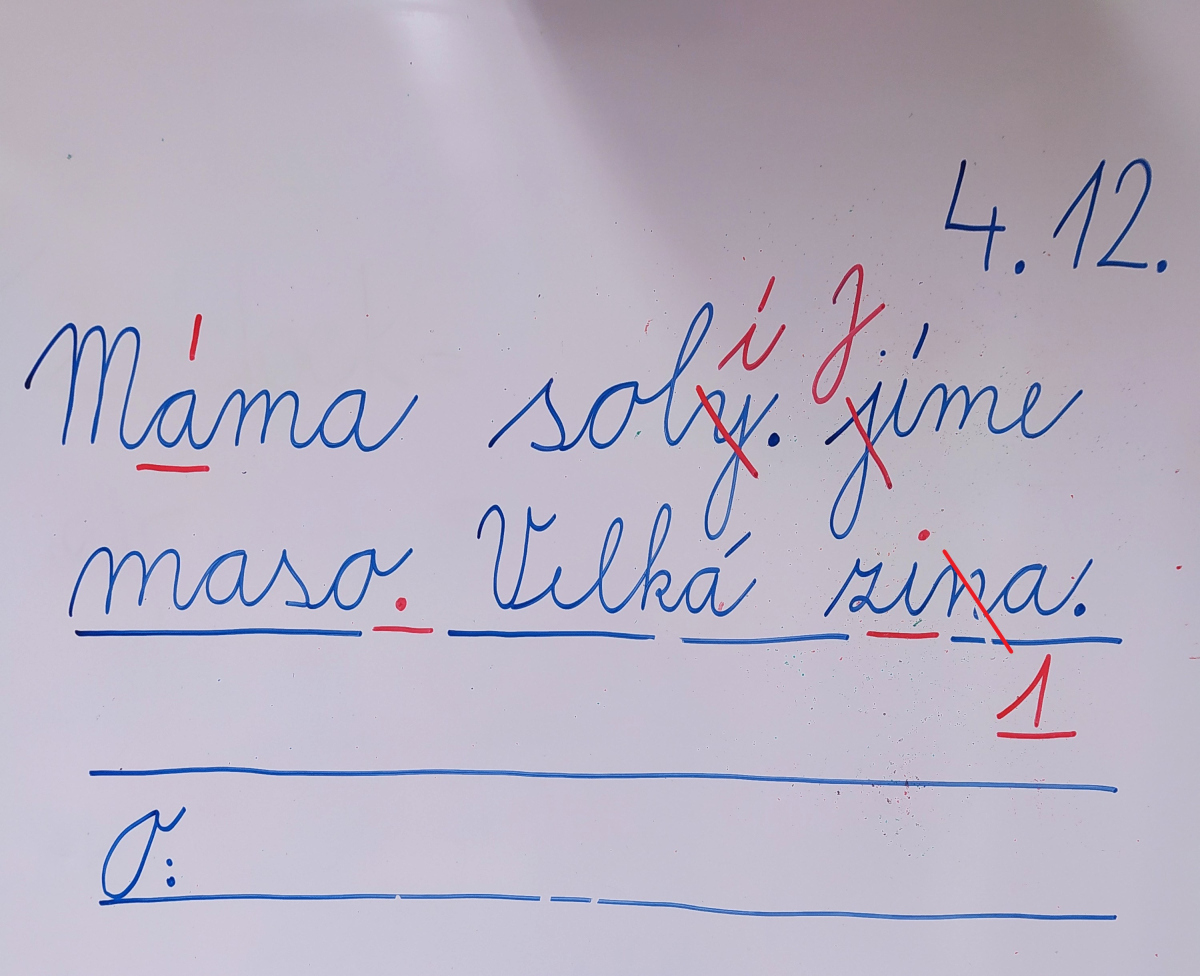 4. 12.
í J
Máma soly. jíme
maso. Velká zina.
1
O: